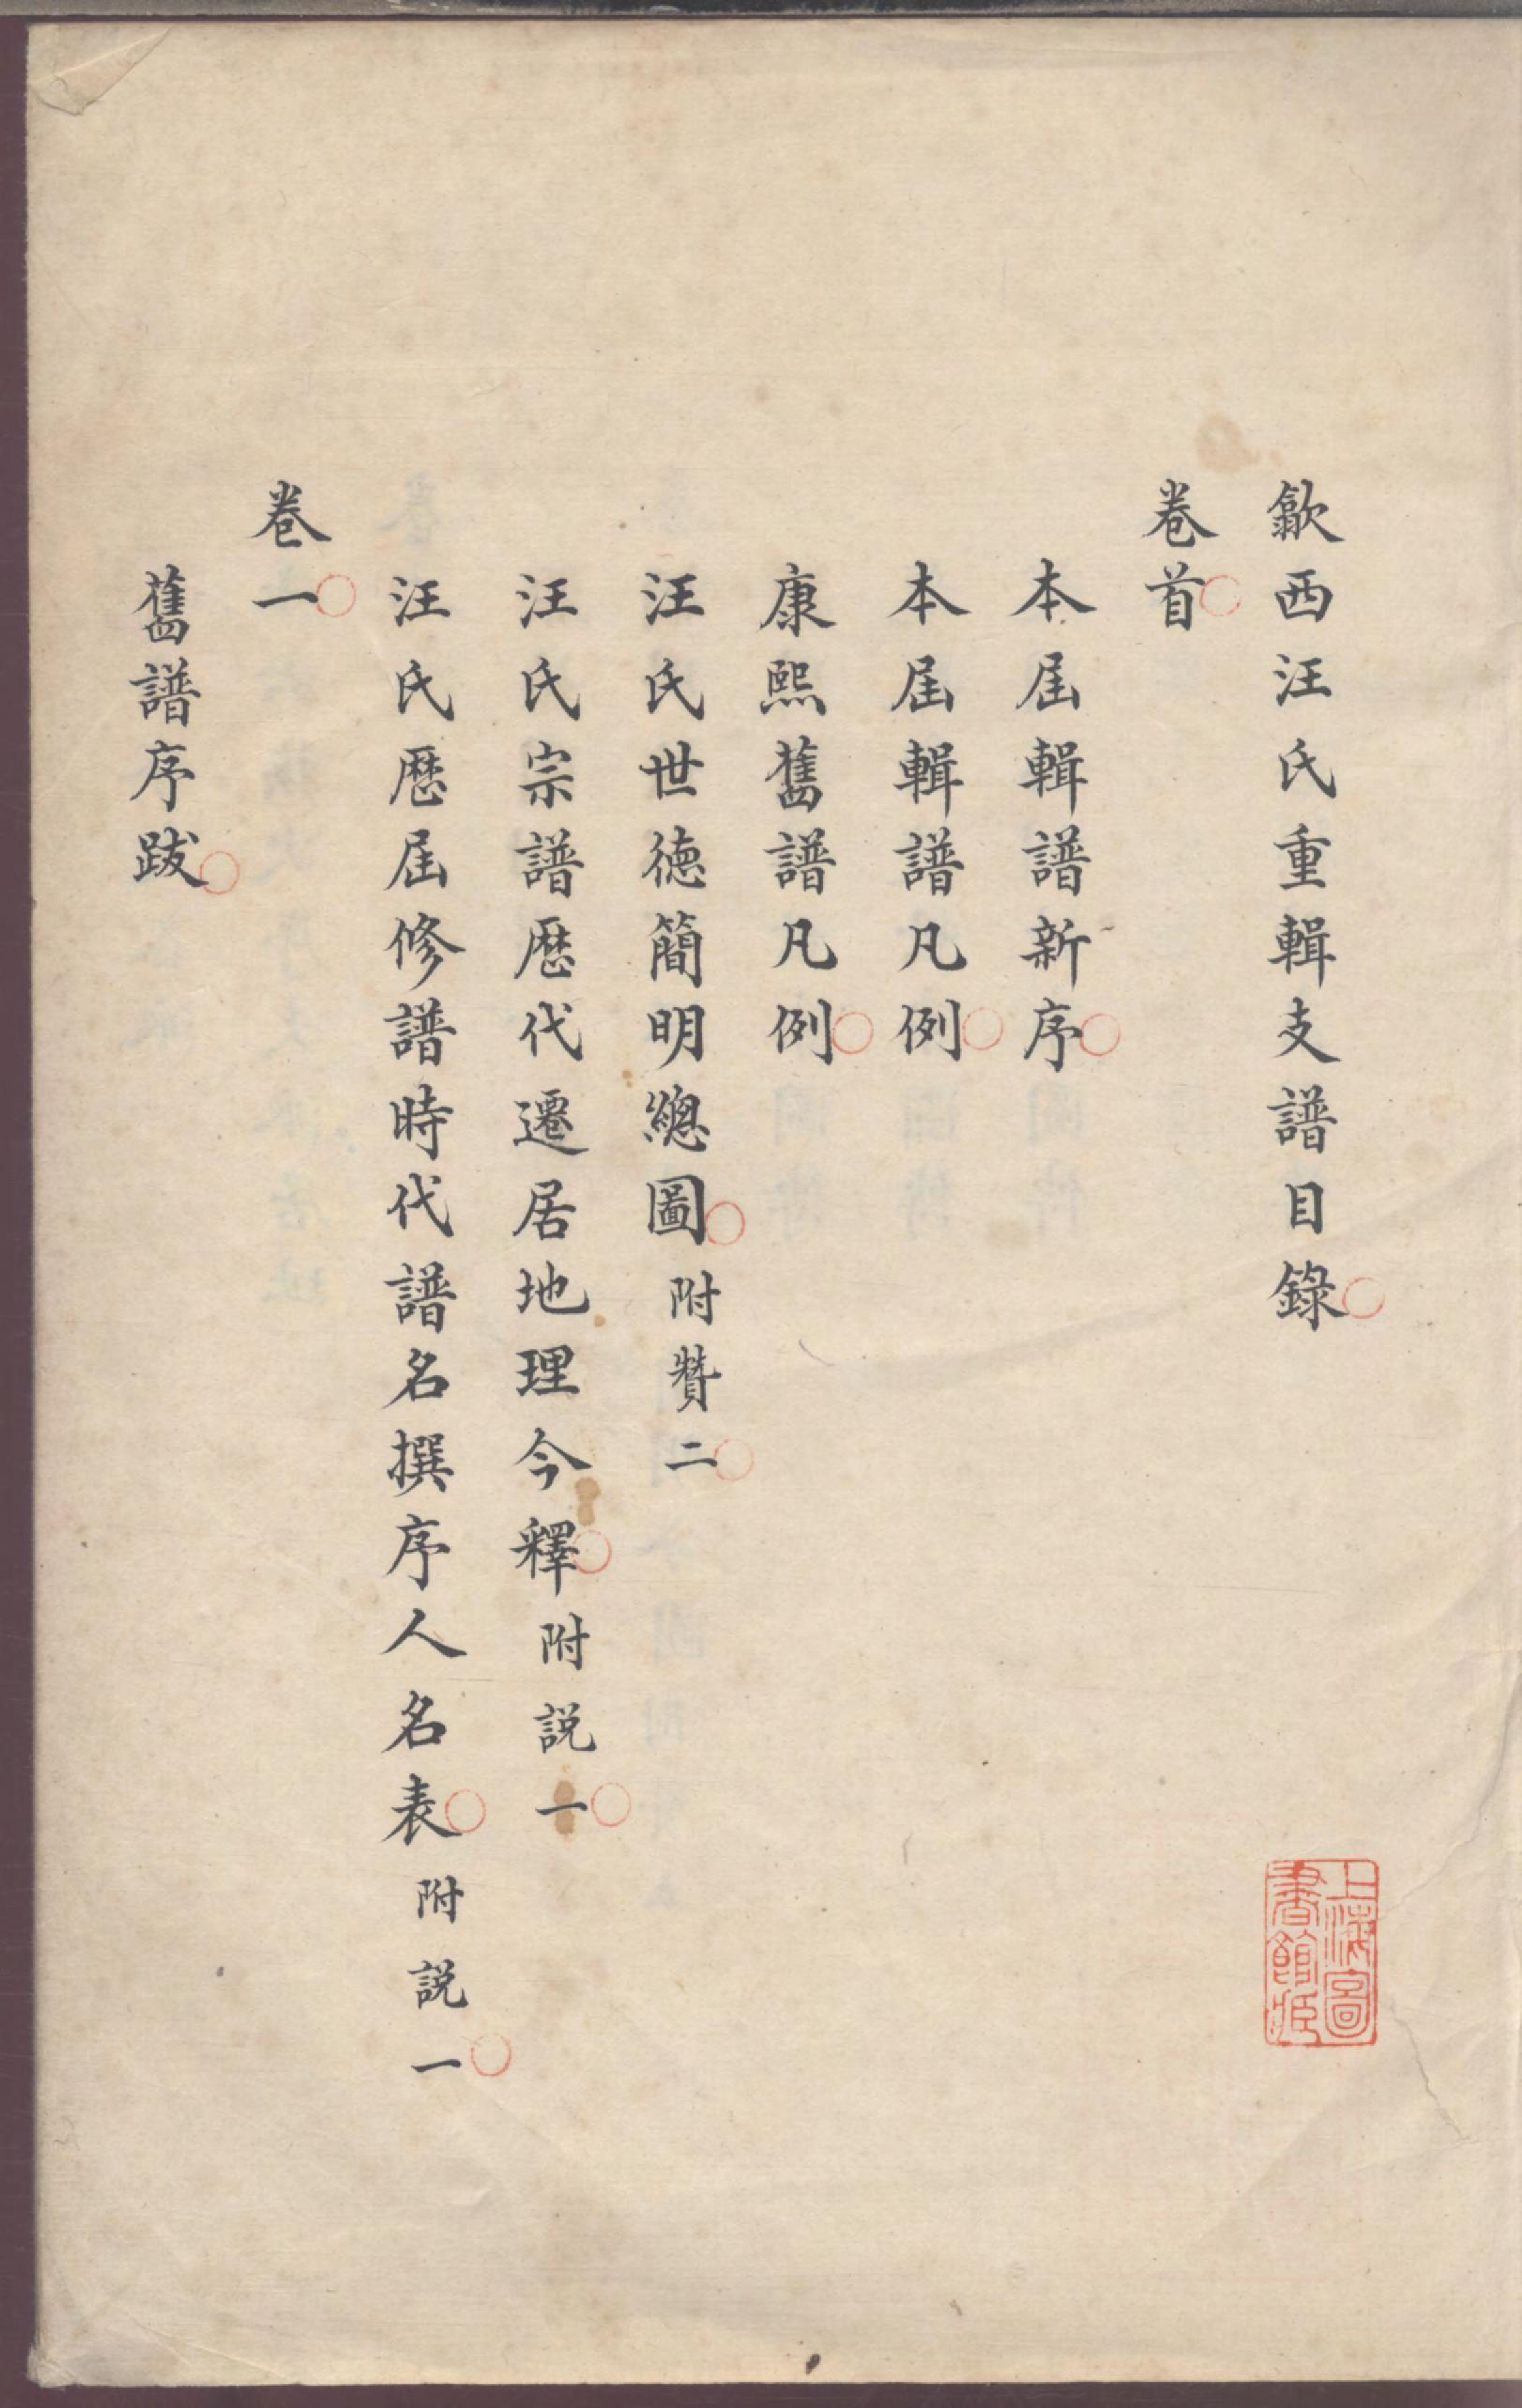 歙西汪氏重輯支譜目錄
卷首
本屆輯譜新序
本屆輯譜凡例
康熙舊譜凡例
汪氏世德簡明總圖附贊二
汪氏宗譜歷代遷居地理今釋附説一
汪氏歷屆修譜時代譜名撰序人名表附説一
卷一
舊譜序跋
上海圖
書館藏